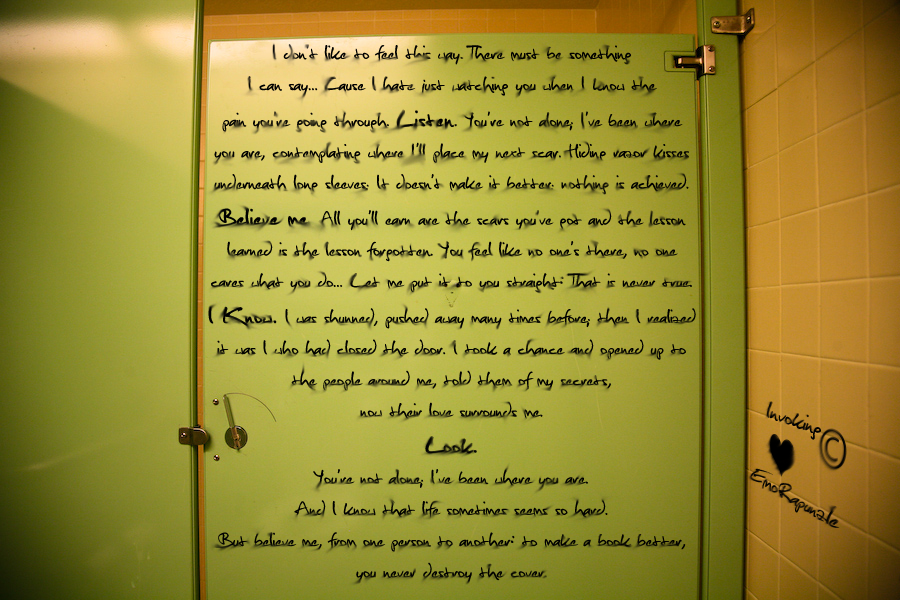 I don't like to feel this way. There must be something
I can say... Cause I hate just watching you when I know the
pain you're going through. Listen. You're not alone; I've been where
you are, contemplating where I'll place my next scar. Hiding razor kisses
underneath long sleeves. It doesn't make it better: nothing is achieved.
Believe me. All you'll earn are the scars you've got and the lesson
learned is the lesson forgotten. You feel like no one's there, no one
cares what you do... Let me put it to you straight: That is never true.
I Know. I was shunned, pushed away many times before; then I realized
it was I who had closed the door. I took a chance and opened up to
the people around me, told them of my secrets,
now their love surrounds me.
Look.
You're not alone; I've been where you are.
And I know that life sometimes seems so hard.
But believe me, from one person to another: to make a book better,
you never destroy the cover.
Invoking ©
♥
EmoRapunzle